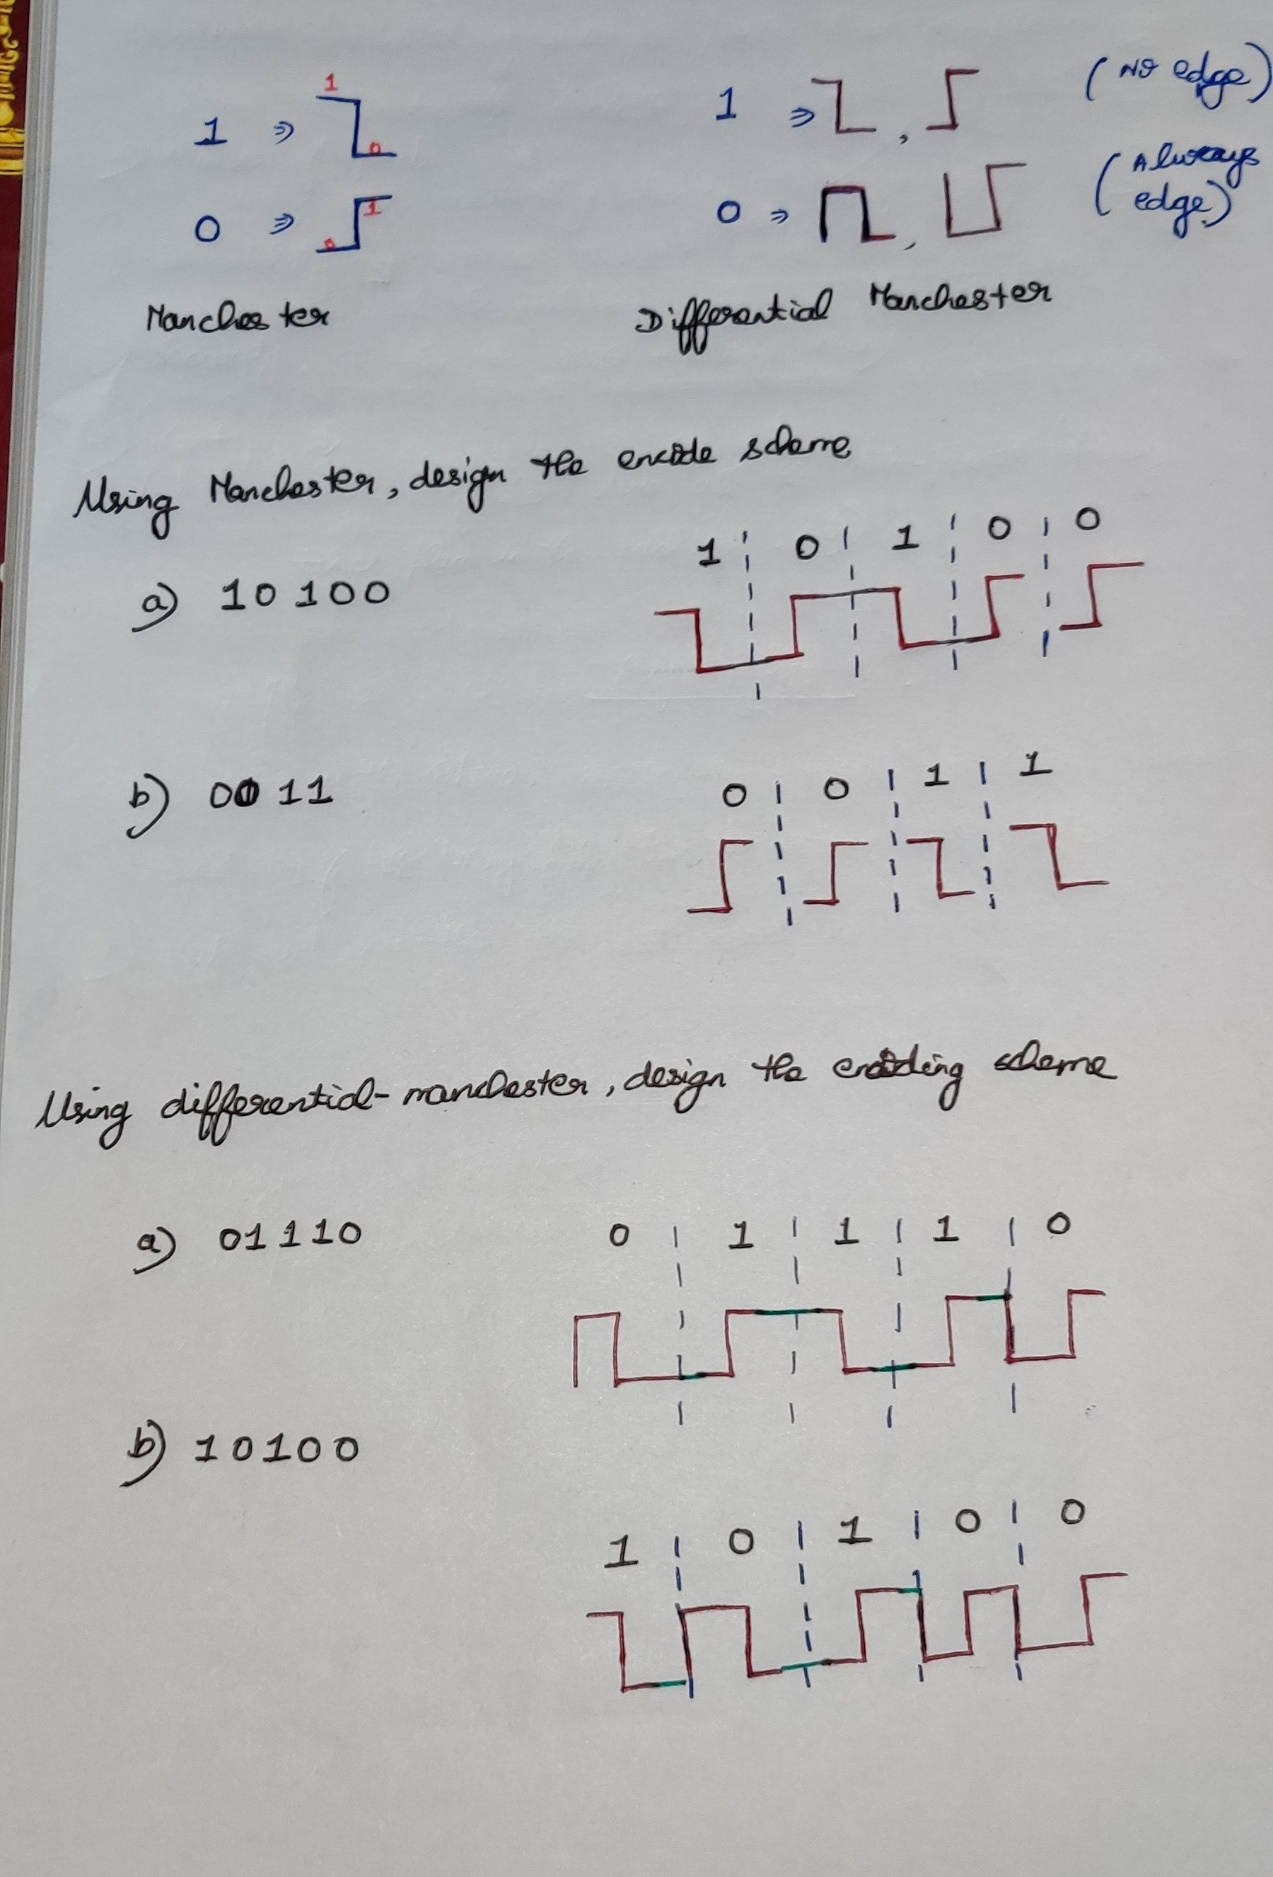 1 ⇒ 1 0
1 ⇒ , (No edge)
0 ⇒ 0 1
0 ⇒ , (Always edge)
Manchester
Differential Manchester
Using Manchester, design the encode scheme
1 0 1 0 0
a) 10100
b) 0011
0 0 1 1
Using differential-manchester, design the encoding scheme
a) 01110
0 1 1 1 0
b) 10100
1 0 1 0 0